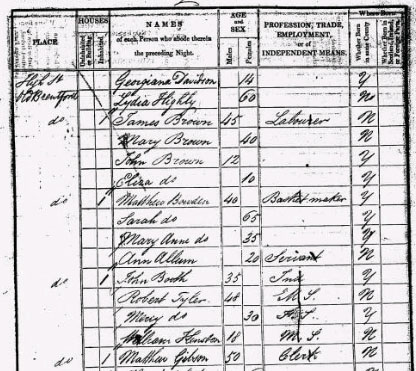 PLACE HOUSES Uninhabited or Building Inhabited NAMES of each Person who abode therein the preceding Night. AGE and SEX Males Females PROFESSION, TRADE, EMPLOYMENT, or of INDEPENDENT MEANS. Where Born Whether Born in same County
High St Georgiana Davidson 14 Y
Brentford Lydia Flighty 60 No
do 1 James Brown 45 Labourer N
Mary Brown 40 N
John Brown 12 Y
Eliza do 10 Y
do 1 Matthew Bowden 40 Basket maker Y
Sarah do 65 Y
Mary Anne do 35 Y
Ann Allum 20 Servant N
do 1 John Booth 35 Ind Y
Robert Tyler 48 M.S. N
Mercy do 30 F.S. Y
William 18 M.S. N
do 1 Matthew Gibson 50 Clerk N